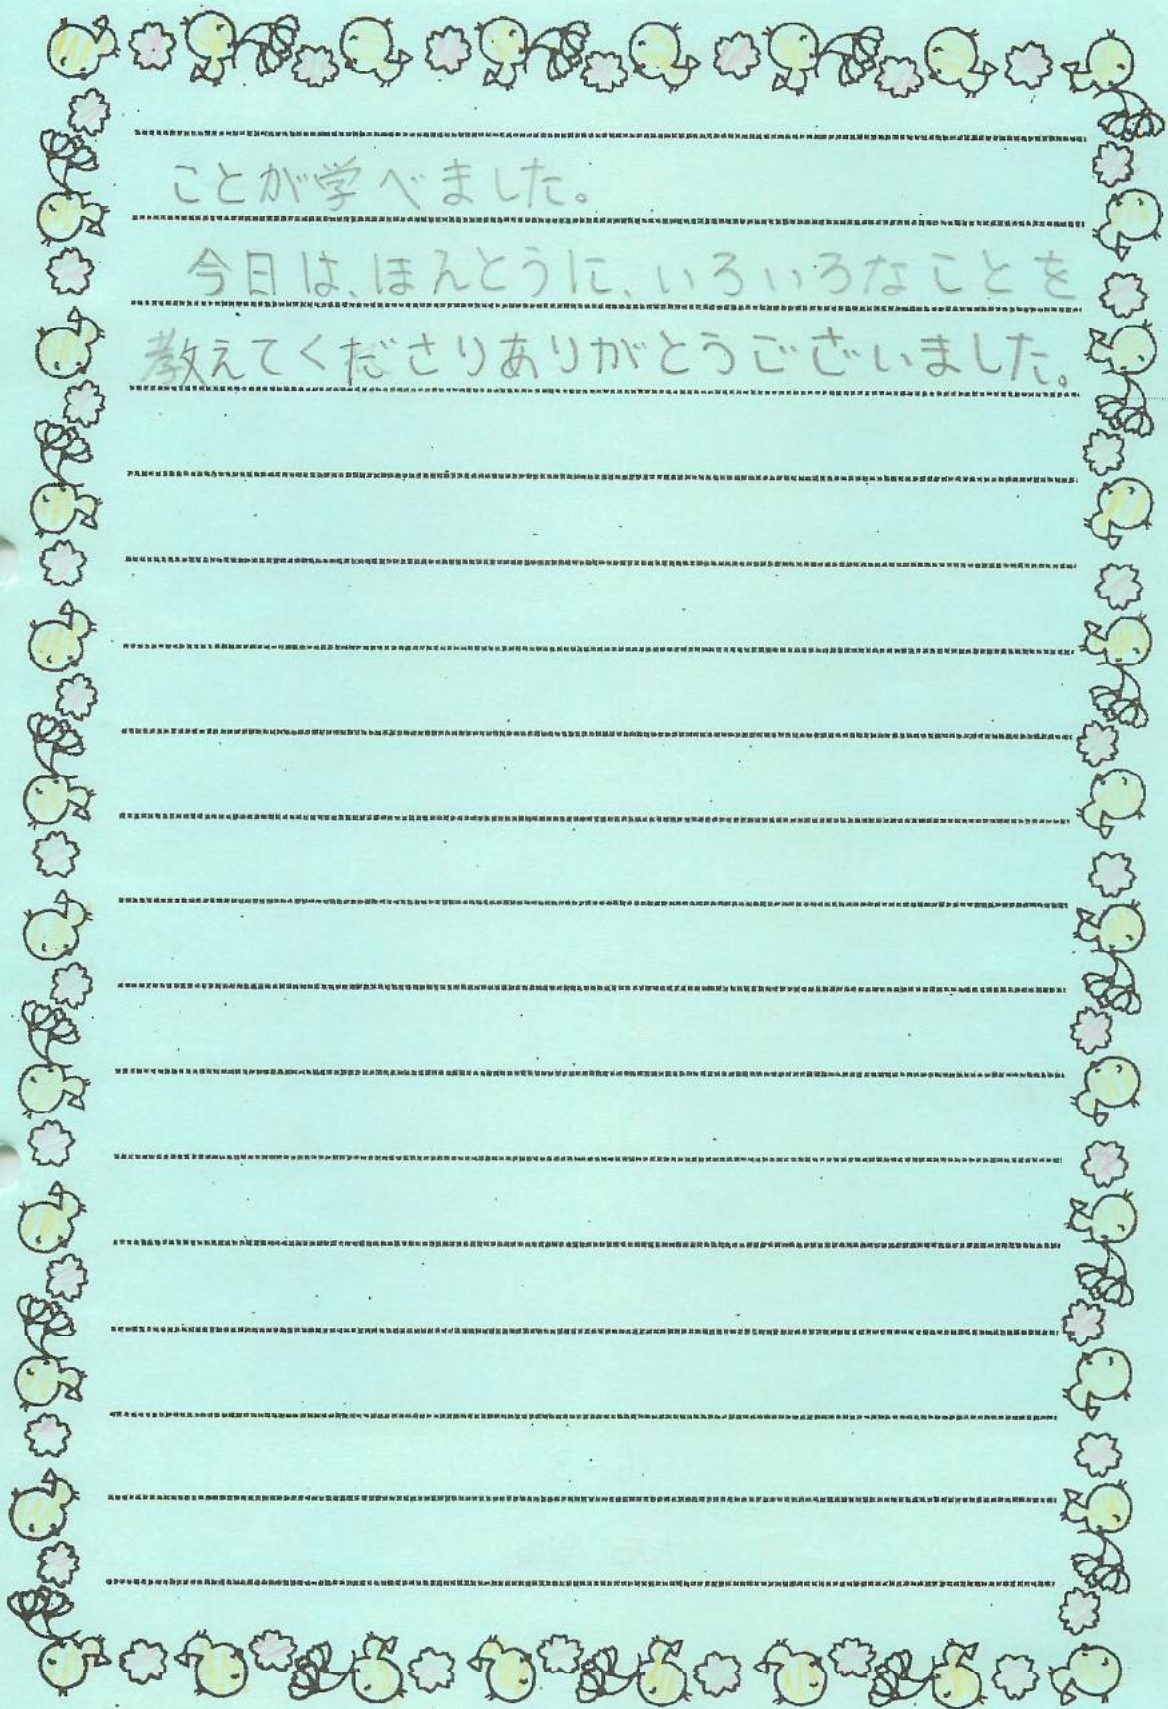 ことが学べました。
今日は、ほんとうに、いろいろなことを
教えてくださりありがとうございました。